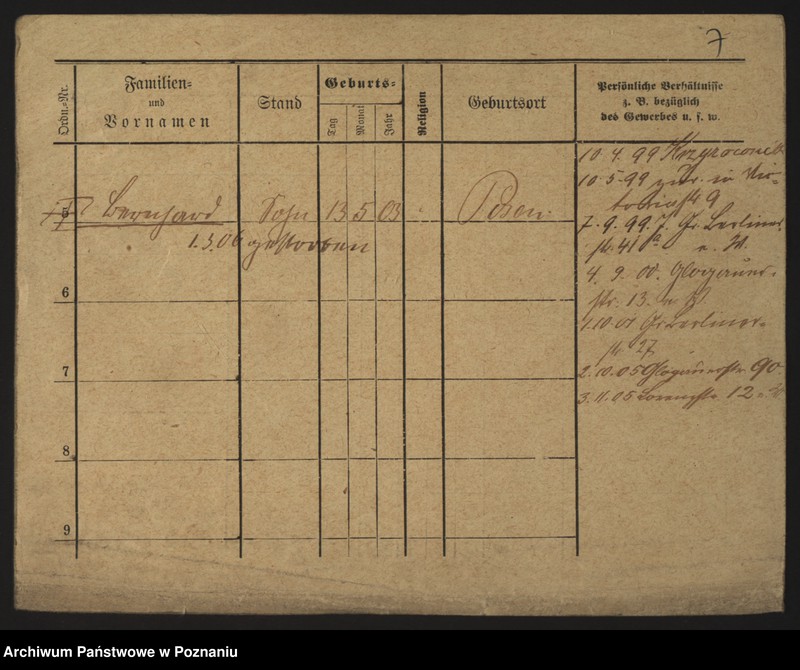 7
Ordn.-Nr.
Familien-
und
Vornamen
Stand
Geburts-
Tag
Monat
Jahr
Religion
Geburtsort
Persönliche Verhältnisse
z. B. bezüglich
des Gewerbes u. s. w.
10.4.99
10.5.99 in Vic-
toriastr 9
5 Bernhard Sohn 13 5 03 Posen
7.9.99 Gr. Berliner
str. 41
1.3.06 gestorben
4.9.00. Glogauer-
str. 13.
6
Gr. Berliner-
str 27
7
2.10.05 Glogauerstr 90
3.11.05 12
8
9
Archiwum Państwowe w Poznaniu